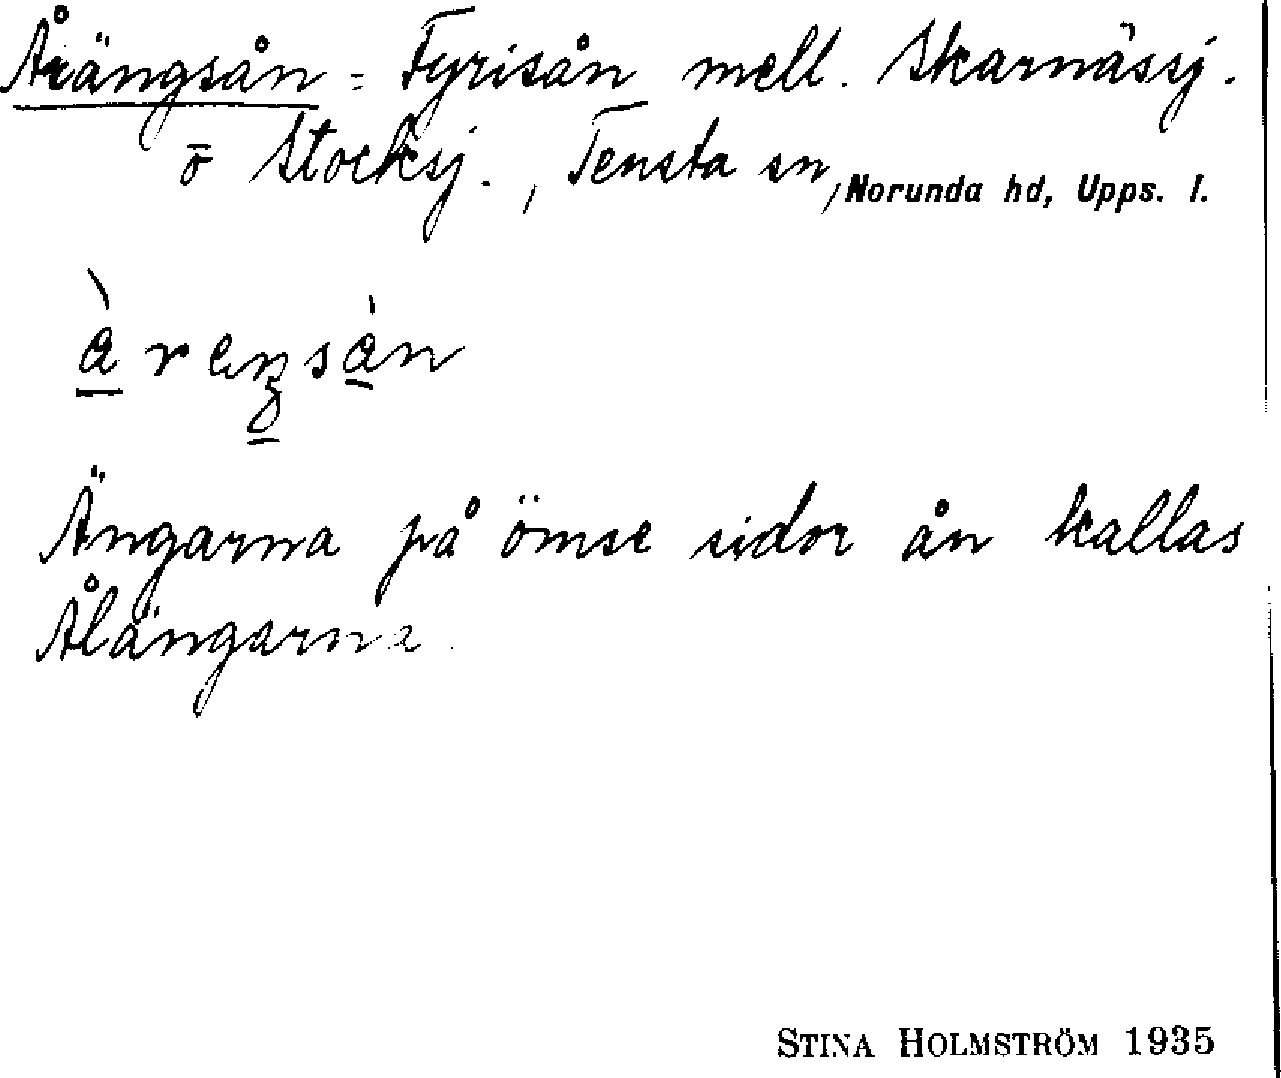 Årängsån = Fyrisån mell. Skarnässj.
o Stocksj., Tensta sn, Norunda hd, Upps. l.
Ängarna på ömse sidor ån kallas
Ålängarna.
STINA HOLMSTRÖM 1935